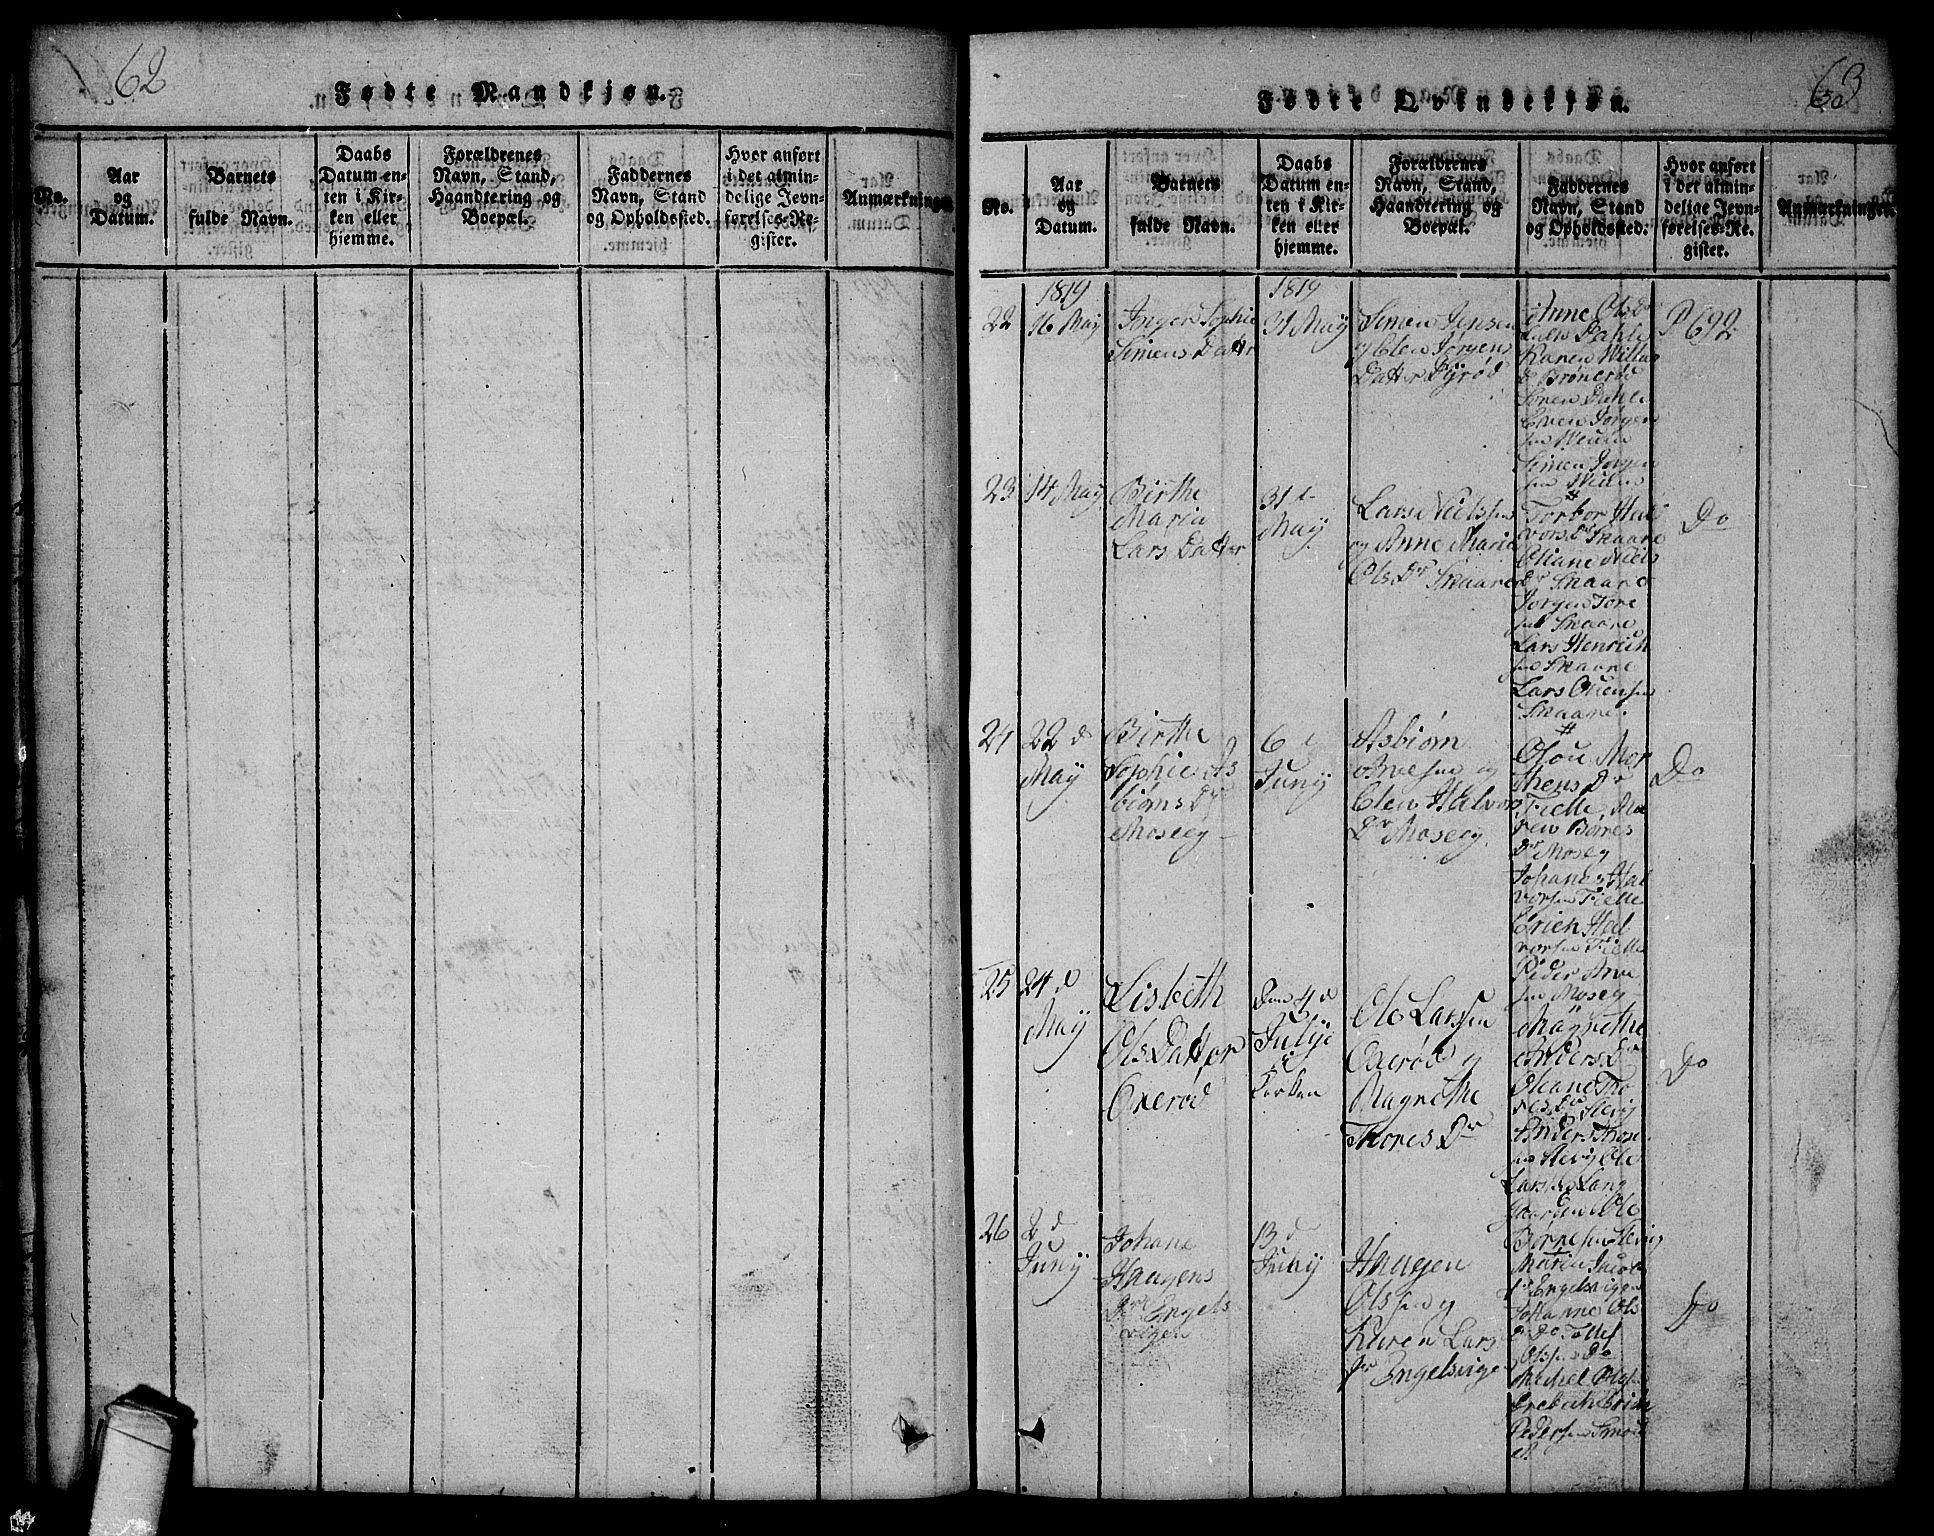 62
Fødte Mandkjøn.
No.
Aar
og
Datum.
Barnets
fulde Navn.
Daabs
Datum en-
ten i Kir-
ken eller
hjemme.
Forældrenes
Navn, Stand,
Haandtering og
Boepæl.
Faddernes
Navn, Stand
og Opholdssted.
Hvor anført
i det almin-
delige Jevn-
førelses-Re-
gister.
Anmærkninger.
63
Fødte Qvindekjøn.
No.
Aar
og
Datum.
Barnets
fulde Navn.
Daabs
Datum en-
ten i Kir-
ken eller
hjemme.
Forældrenes
Navn, Stand,
Haandtering og
Boepæl.
Faddernes
Navn, Stand
og Opholdssted.
Hvor anført
i det almin-
delige Jevn-
førelses-Re-
gister.
Anmærkninger.
22
1819
16 May
Inger Sophie
Simens Datter
1819
31 May
Simen Jensen
og Elen Jørgens
Datter Dyrød
Anne Ols Dr
Dahle
Karen
Brønerød
Søren Dahle
Even Jørgen
sen
Simen Jørgen
sen
P 692
23
14 May
Birthe
Maria
Lars Datter
31 d
May
Lars Nielsen
og Anne Maria
Ols Dr Snaare
Torbor Hal
vors Dr Snaare
Oliane Niels
Dr Snaare
Jørgen Tore
sen Snaare
Lars Henrich
sen Snaare
Lars Olien sen
Snaare.
Do
24
22 d
May
Birthe
Sophie As
biørns Dr
Moseeg
6 d
Juny
Asbiørn
og
Elen Halvors
Dr Moseeg
Olou Mor
thens Dr
Tielle, Ma
ren Børres
Dr Moseg
Johanes Hal
vorsen Tielle
Erich Hal
vorsen Tielle
Peder
sen Moseg
Do
25
24 d
May
Lisbeth
Ols Datter
Oxerød
Den 4 d
Julye
i
Kirken
Ole Larssen
Oxerød og
Magrethe
Thores Dr
Magrethe
Anders Dr
Oleane Tho
res Dr
Anders Thore
sen Ole
Larssen Lang
gaarden Ole
Børresen
Do
26
2 d
Juny
Johane
Haagens
Dr Engels
vigen
13 d
Juny
Haagen
Olssen og
Karen Lars
Dr Engelsvigen
Maria Jacobs
Dr Engelsvigen
Johanne Ols
Dr Do Tollef
Olssen Do
Michel Ols
Pedersen
Do